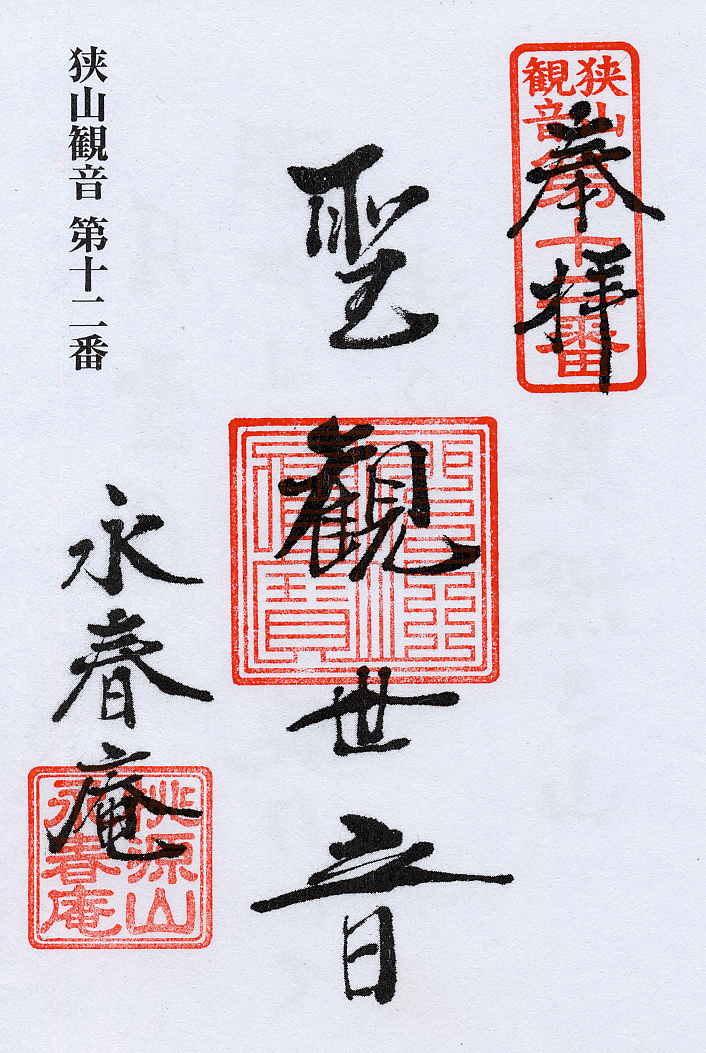 奉拝
狭山
観音
第十二番
聖観世音
狭山観音 第十二番
永春庵
桃源山
永春庵